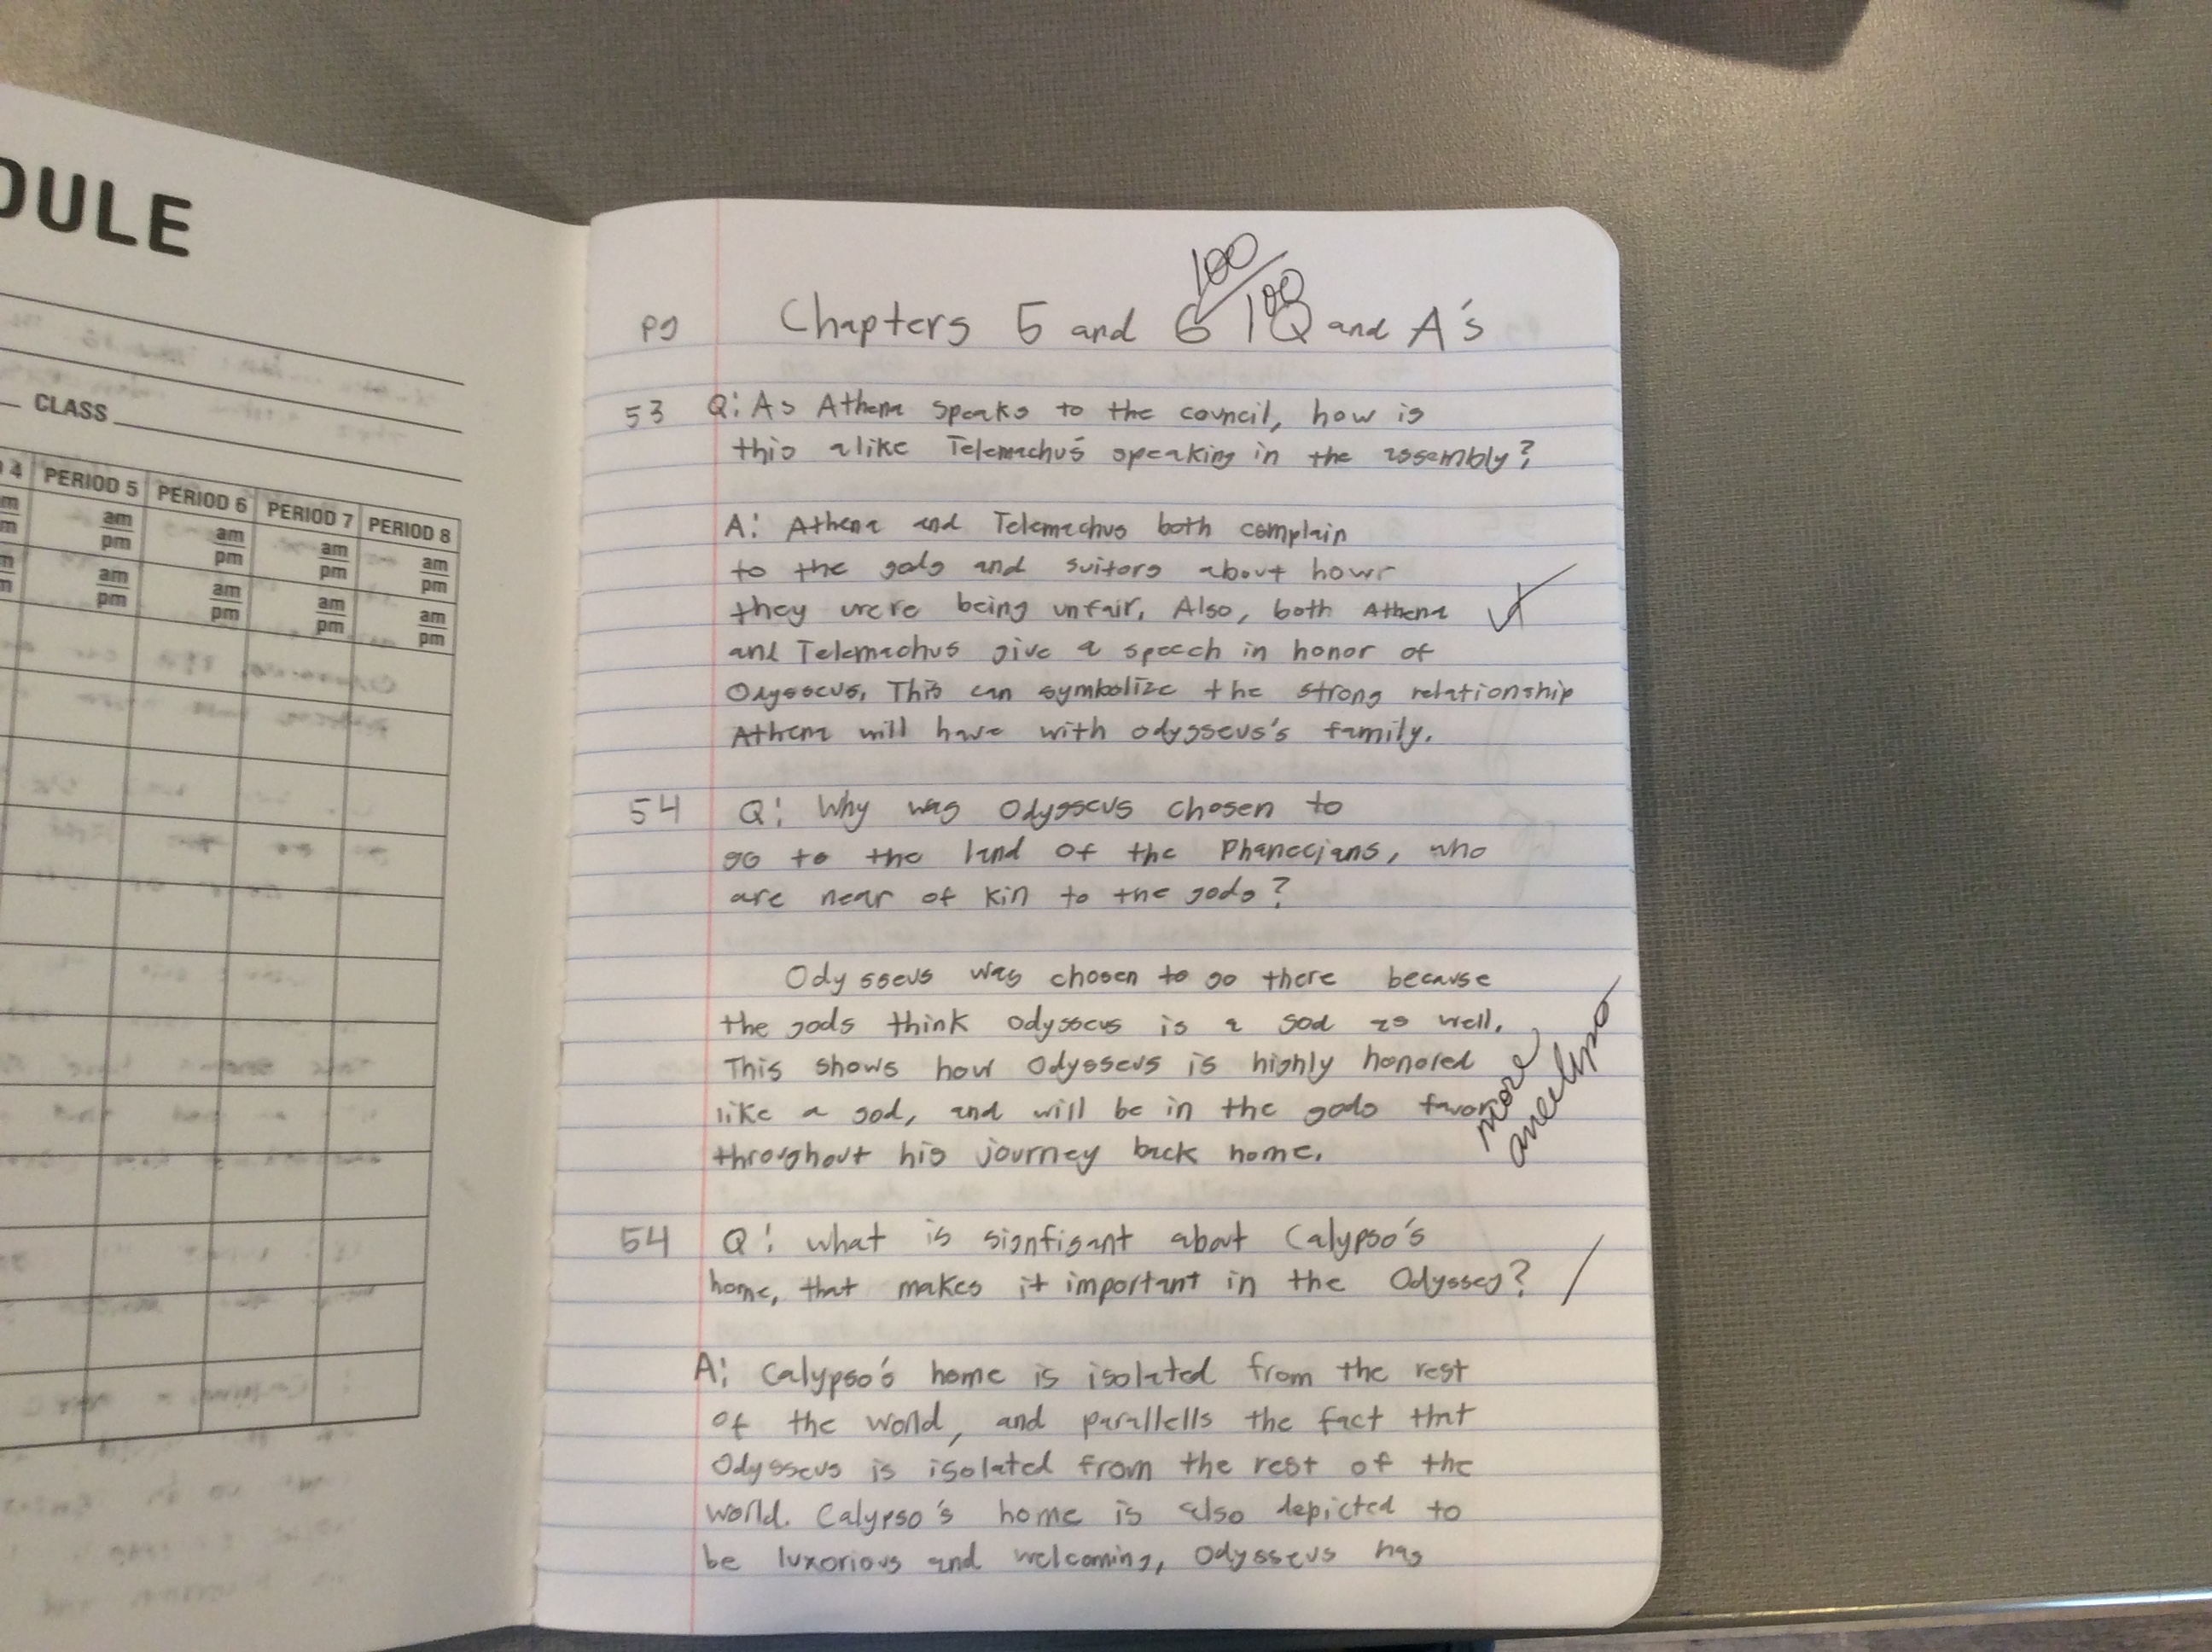 DULE
CLASS
4 PERIOD 5 PERIOD 6 PERIOD 7 PERIOD 8
am am am am am
pm pm pm pm pm
am am am am am
pm pm pm pm pm
100/100
pg Chapters 5 and 6 Q and A's
53 Q: As Athena speaks to the council, how is
this alike Telemachus speaking in the assembly?
A: Athena and Telemachus both complain
to the gods and suitors about how
they were being unfair. Also, both Athena
and Telemachus give a speech in honor of
Odysseus. This can symbolize the strong relationship
Athena will have with odysseus's family.
54 Q: Why was Odysseus chosen to
go to the land of the Phanecians, who
are near of kin to the gods?
Odysseus was chosen to go there because
the gods think odysseus is a god as well.
This shows how Odysseus is highly honored
like a god, and will be in the gods favor
throughout his journey back home.
more
54 Q: what is signfigant about Calypso's
home, that makes it important in the Odyssey?
A: Calypso's home is isolated from the rest
of the world, and parallells the fact that
Odysseus is isolated from the rest of the
world. Calypso's home is also depicted to
be luxorious and welcoming, Odysseus has